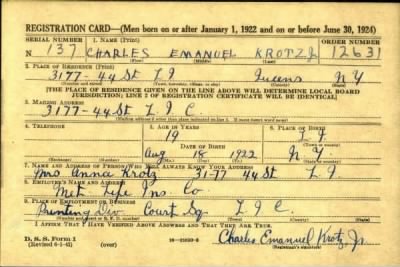 REGISTRATION CARD—(Men born on or after January 1, 1922 and on or before June 30, 1924)
SERIAL NUMBER 1. NAME (Print) ORDER NUMBER
N 137 CHARLES EMANUEL KROTZ Jr 12631
(First) (Middle) (Last)
2. PLACE OF RESIDENCE (Print)
3177-44 St L I Queens N Y
(Number and street) (Town, township, village, or city) (County) (State)
[THE PLACE OF RESIDENCE GIVEN ON THE LINE ABOVE WILL DETERMINE LOCAL BOARD
JURISDICTION; LINE 2 OF REGISTRATION CERTIFICATE WILL BE IDENTICAL]
3. MAILING ADDRESS
3177-44 St L I C
[Mailing address if other than place indicated on line 2. If same insert word same]
4. TELEPHONE 5. AGE IN YEARS 6. PLACE OF BIRTH
19 L I
DATE OF BIRTH (Town or county)
Aug 18 1922 N Y
(Exchange) (Number) (Mo.) (Day) (Yr.) (State or country)
7. NAME AND ADDRESS OF PERSON WHO WILL ALWAYS KNOW YOUR ADDRESS
Mrs Anna Krotz 31-77 44 St L I
8. EMPLOYER'S NAME AND ADDRESS
Met. Life Ins. Co
9. PLACE OF EMPLOYMENT OR BUSINESS
Printing Div Court Sq L I C
(Number and street or R. F. D. number) (Town) (County) (State)
I AFFIRM THAT I HAVE VERIFIED ABOVE ANSWERS AND THAT THEY ARE TRUE.
D. S. S. Form 1
(Revised 6-1-42) (over) Charles Emanuel Krotz, Jr.
(Registrant's signature)